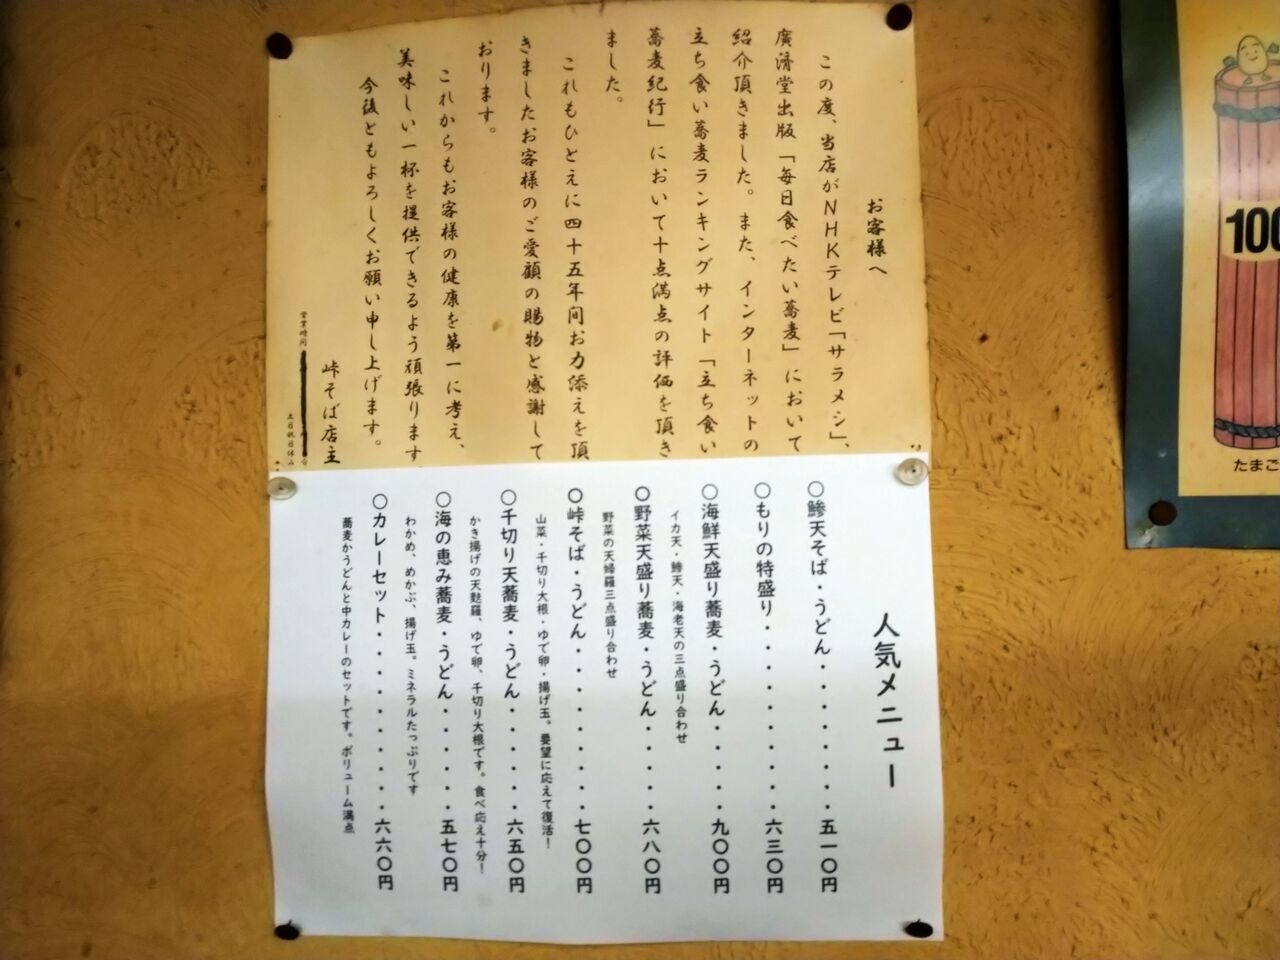 お客様へ
この度、当店がNHKテレビ「サラメシ」、
廣済堂出版「毎日食べたい蕎麦」において
紹介頂きました。また、インターネットの
立ち食い蕎麦ランキングサイト「立ち食い
蕎麦紀行」において十点満点の評価を頂き
ました。
これもひとえに四十五年間お力添えを頂
きましたお客様のご愛顧の賜物と感謝して
おります。
これからもお客様の健康を第一に考え、
美味しい一杯を提供できるよう頑張ります。
今後ともよろしくお願い申し上げます。
峠そば店主
営業時間
土日祝日休み
人気メニュー
〇鯵天そば・うどん・・・・・・・・五一〇円
〇もりの特盛り・・・・・・・・・・六三〇円
〇海鮮天盛り蕎麦・うどん・・・・・九〇〇円
イカ天・鯵天・海老天の三点盛り合わせ
〇野菜天盛り蕎麦・うどん・・・・・六八〇円
野菜の天婦羅三点盛り合わせ
〇峠そば・うどん・・・・・・・・・七〇〇円
山菜・千切り大根・ゆで卵・揚げ玉。要望に応えて復活！
〇千切り天蕎麦・うどん・・・・・・六五〇円
かき揚げの天麩羅、ゆで卵、千切り大根です。食べ応え十分！
〇海の恵み蕎麦・うどん・・・・・・五七〇円
わかめ、めかぶ、揚げ玉。ミネラルたっぷりです
〇カレーセット・・・・・・・・・・六六〇円
蕎麦かうどんと中カレーのセットです。ボリューム満点
100
たまご